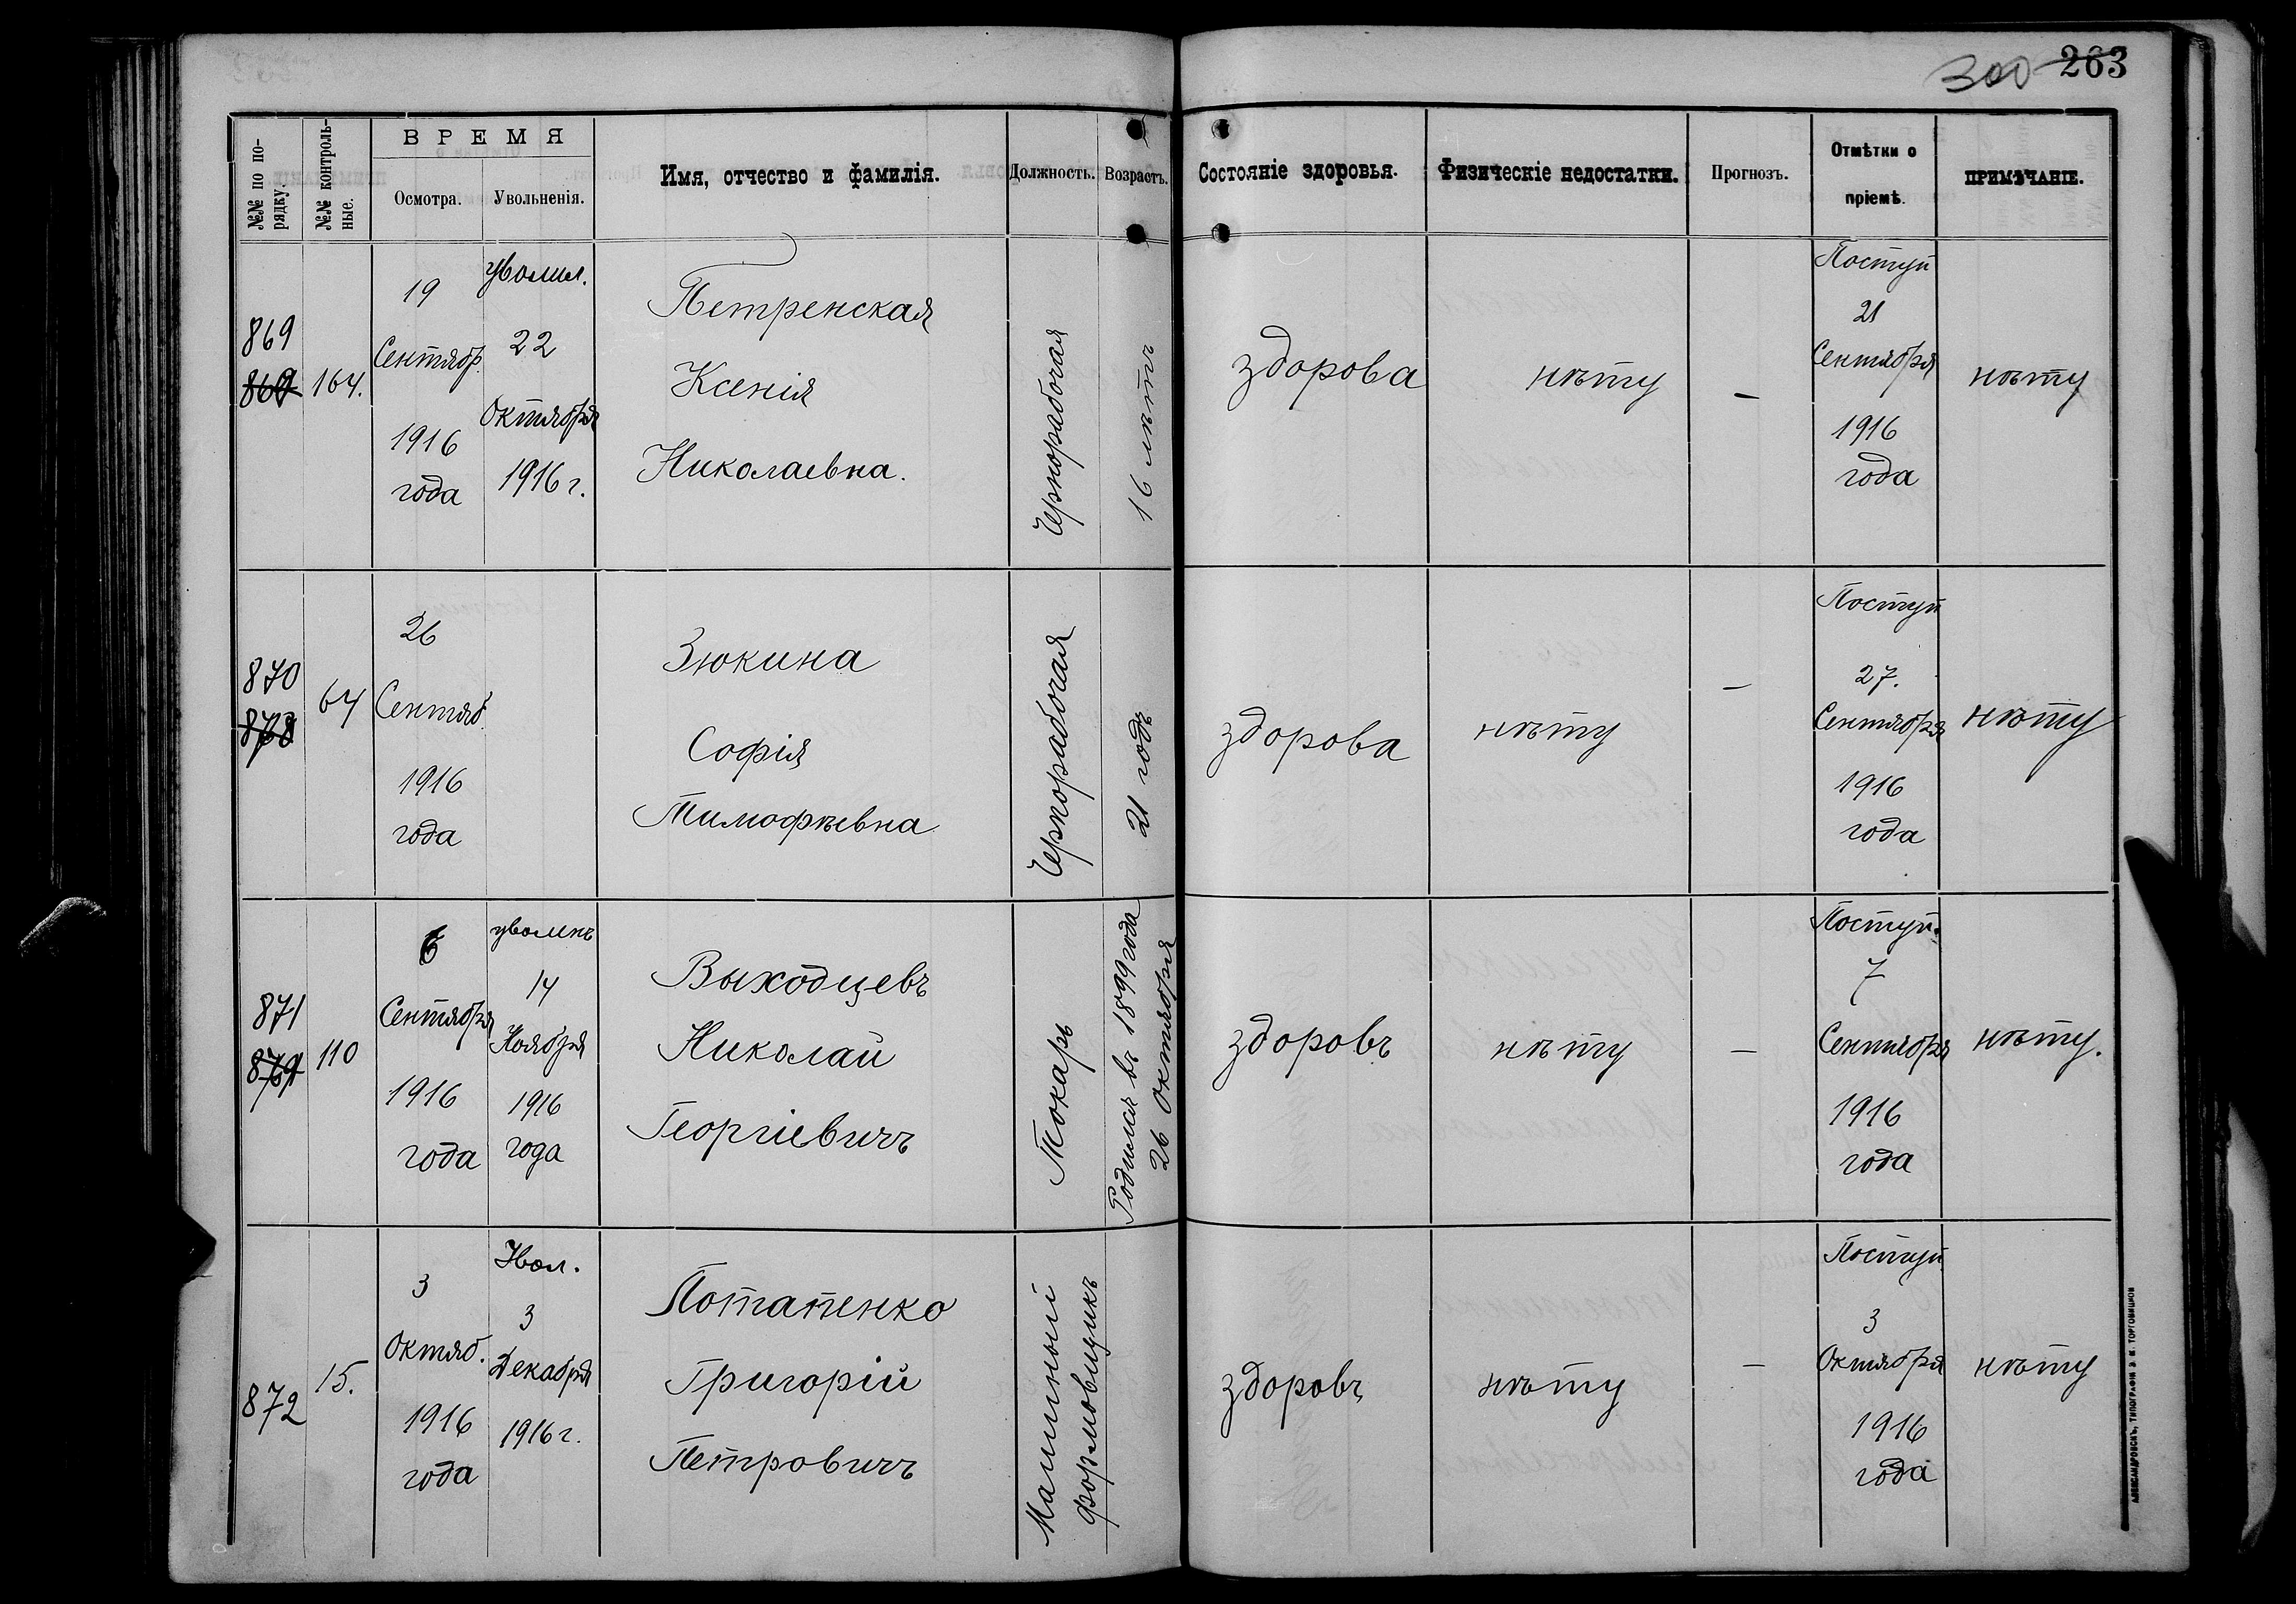 300 263
№№ по по-
рядку.
№№ контроль-
ные.
ВРЕМЯ
Осмотра.
Увольненія.
Имя, отчество и фамилія.
Должность.
Возрастъ.
Состояніе здоровья.
Физическіе недостатки.
Прогнозъ.
Отмѣтки о
пріемѣ.
ПРИМѢЧАНІЕ.
869
869
164.
19
Сентябр.
1916
года
уволил.
22
Октября
1916 г.
Петренская
Ксенія
Николаевна.
Чернорабочая
16 лѣтъ
здорова
нѣту
—
Поступ
21
Сентября
1916
года
нѣту
870
878
64
26
Сентяб.
1916
года
Зюкина
Софія
Тимофѣевна
Чернорабочая
21 годъ
здорова
нѣту
—
Поступ
27.
Сентября
1916
года
нѣту
871
879
110
6
Сентября
1916
года
уволенъ
14
Ноября
1916
года
Выходцевъ
Николай
Георгіевичъ
Токарь
Родился въ 1899 года
26 Октября
здоровъ
нѣту
—
Поступ.
7
Сентября
1916
года
нѣту.
872
15.
3
Октяб.
1916
года
Увол.
3
Декабря
1916 г.
Потапенко
Григорій
Петровичъ
Машинный
формовщикъ
здоровъ
нѣту
—
Поступ
3
Октября
1916
года
нѣту
АЛЕКСАНДРОВСКЪ, ТИПОГРАФІЯ Э. И. ТОРГОВИЦКОВ